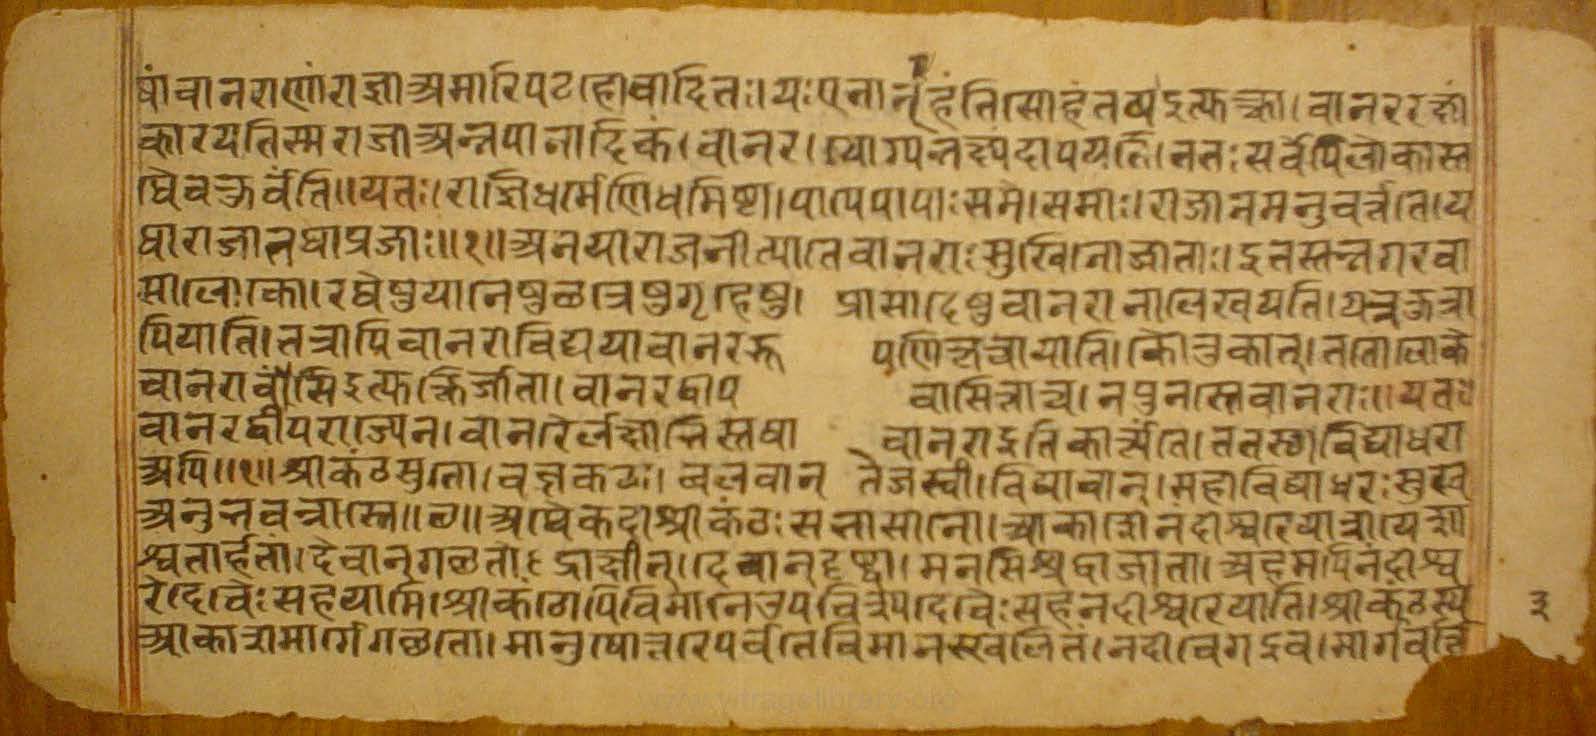 षां वानराणां राज्ञा अमारिपटहो वादितः। यः एनान् हंति। सो हंतव्य इत्युक्त्वा। वानररक्षां
कारयति स्म राजा अन्नपानादिकं। वानर। योग्यन्तद्द्रव्यं दापयति। ततः सर्वेपि लोकास्त
थैव कुर्वंति॥ यतः। राज्ञि धर्मेणि धर्मिष्टा। पापे पापाः समे। समाः। राजानमनुवर्त्तते। य
था राजा तथा प्रजाः॥१॥ अनया राजनीत्या ते वानराः सुखिनो जाताः। इतस्तन्नगरवा
सी लोको। रथेषु यानेषु छत्रेषु गृहेषु। प्रासादेषु वानरानालेखयति। यत्र कुत्रा
पि याति। तत्रापि वानराविद्यया वानररू पाणि कृत्वा याति। कौतुकात्। ततो लोके
वानरा वंसि इत्युक्तिर्जाता। वानरद्वीप वासित्वाच्च। न पुनस्ते वानराः॥ यतः
वानरद्वीपराज्येन। वानरैर्लक्ष्मभिस्तथा वानरा इति कीर्त्त्यंते। ततस्था विद्याधरा
अपि॥१॥ श्रीकंठसुतो। वज्रकंठः। बलवान् तेजस्वी। विद्यावान्। महाविद्याधरः सुख
अनुभवन्नास्ते॥छ॥ अथैकदा श्रीकंठः सभासीनो। आकाशे नंदीश्वरे यात्रायै शा
श्वतार्हतां। देवान् गछतो द्राक्षीत्। देवान् दृष्ट्वा। मनसि श्रद्धा जाता। अहमपि नंदीश्व
रे देवैः सह यामि। श्रीकंठोपि विमाने उपविश्य देवैः सह नंदीश्वरे याति। श्रीकंठस्य
आकाशमार्गे गछतो। मानुषोत्तरे पर्वते विमानस्खलितं। नदीवेग इव। मार्गवर्ति
३